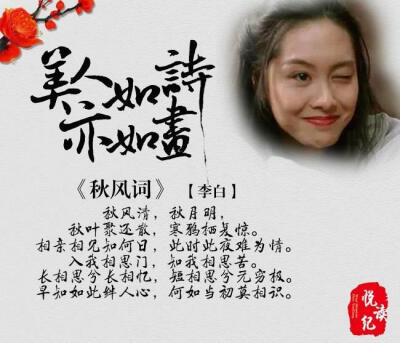 美人如詩
亦如畫
《秋风词》 【李白】
秋风清，秋月明，
秋叶聚还散，寒鸦栖复惊。
相亲相见知何日，此时此夜难为情。
入我相思门，知我相思苦。
长相思兮长相忆，短相思兮无穷极。
早知如此绊人心，何如当初莫相识。
悦读纪